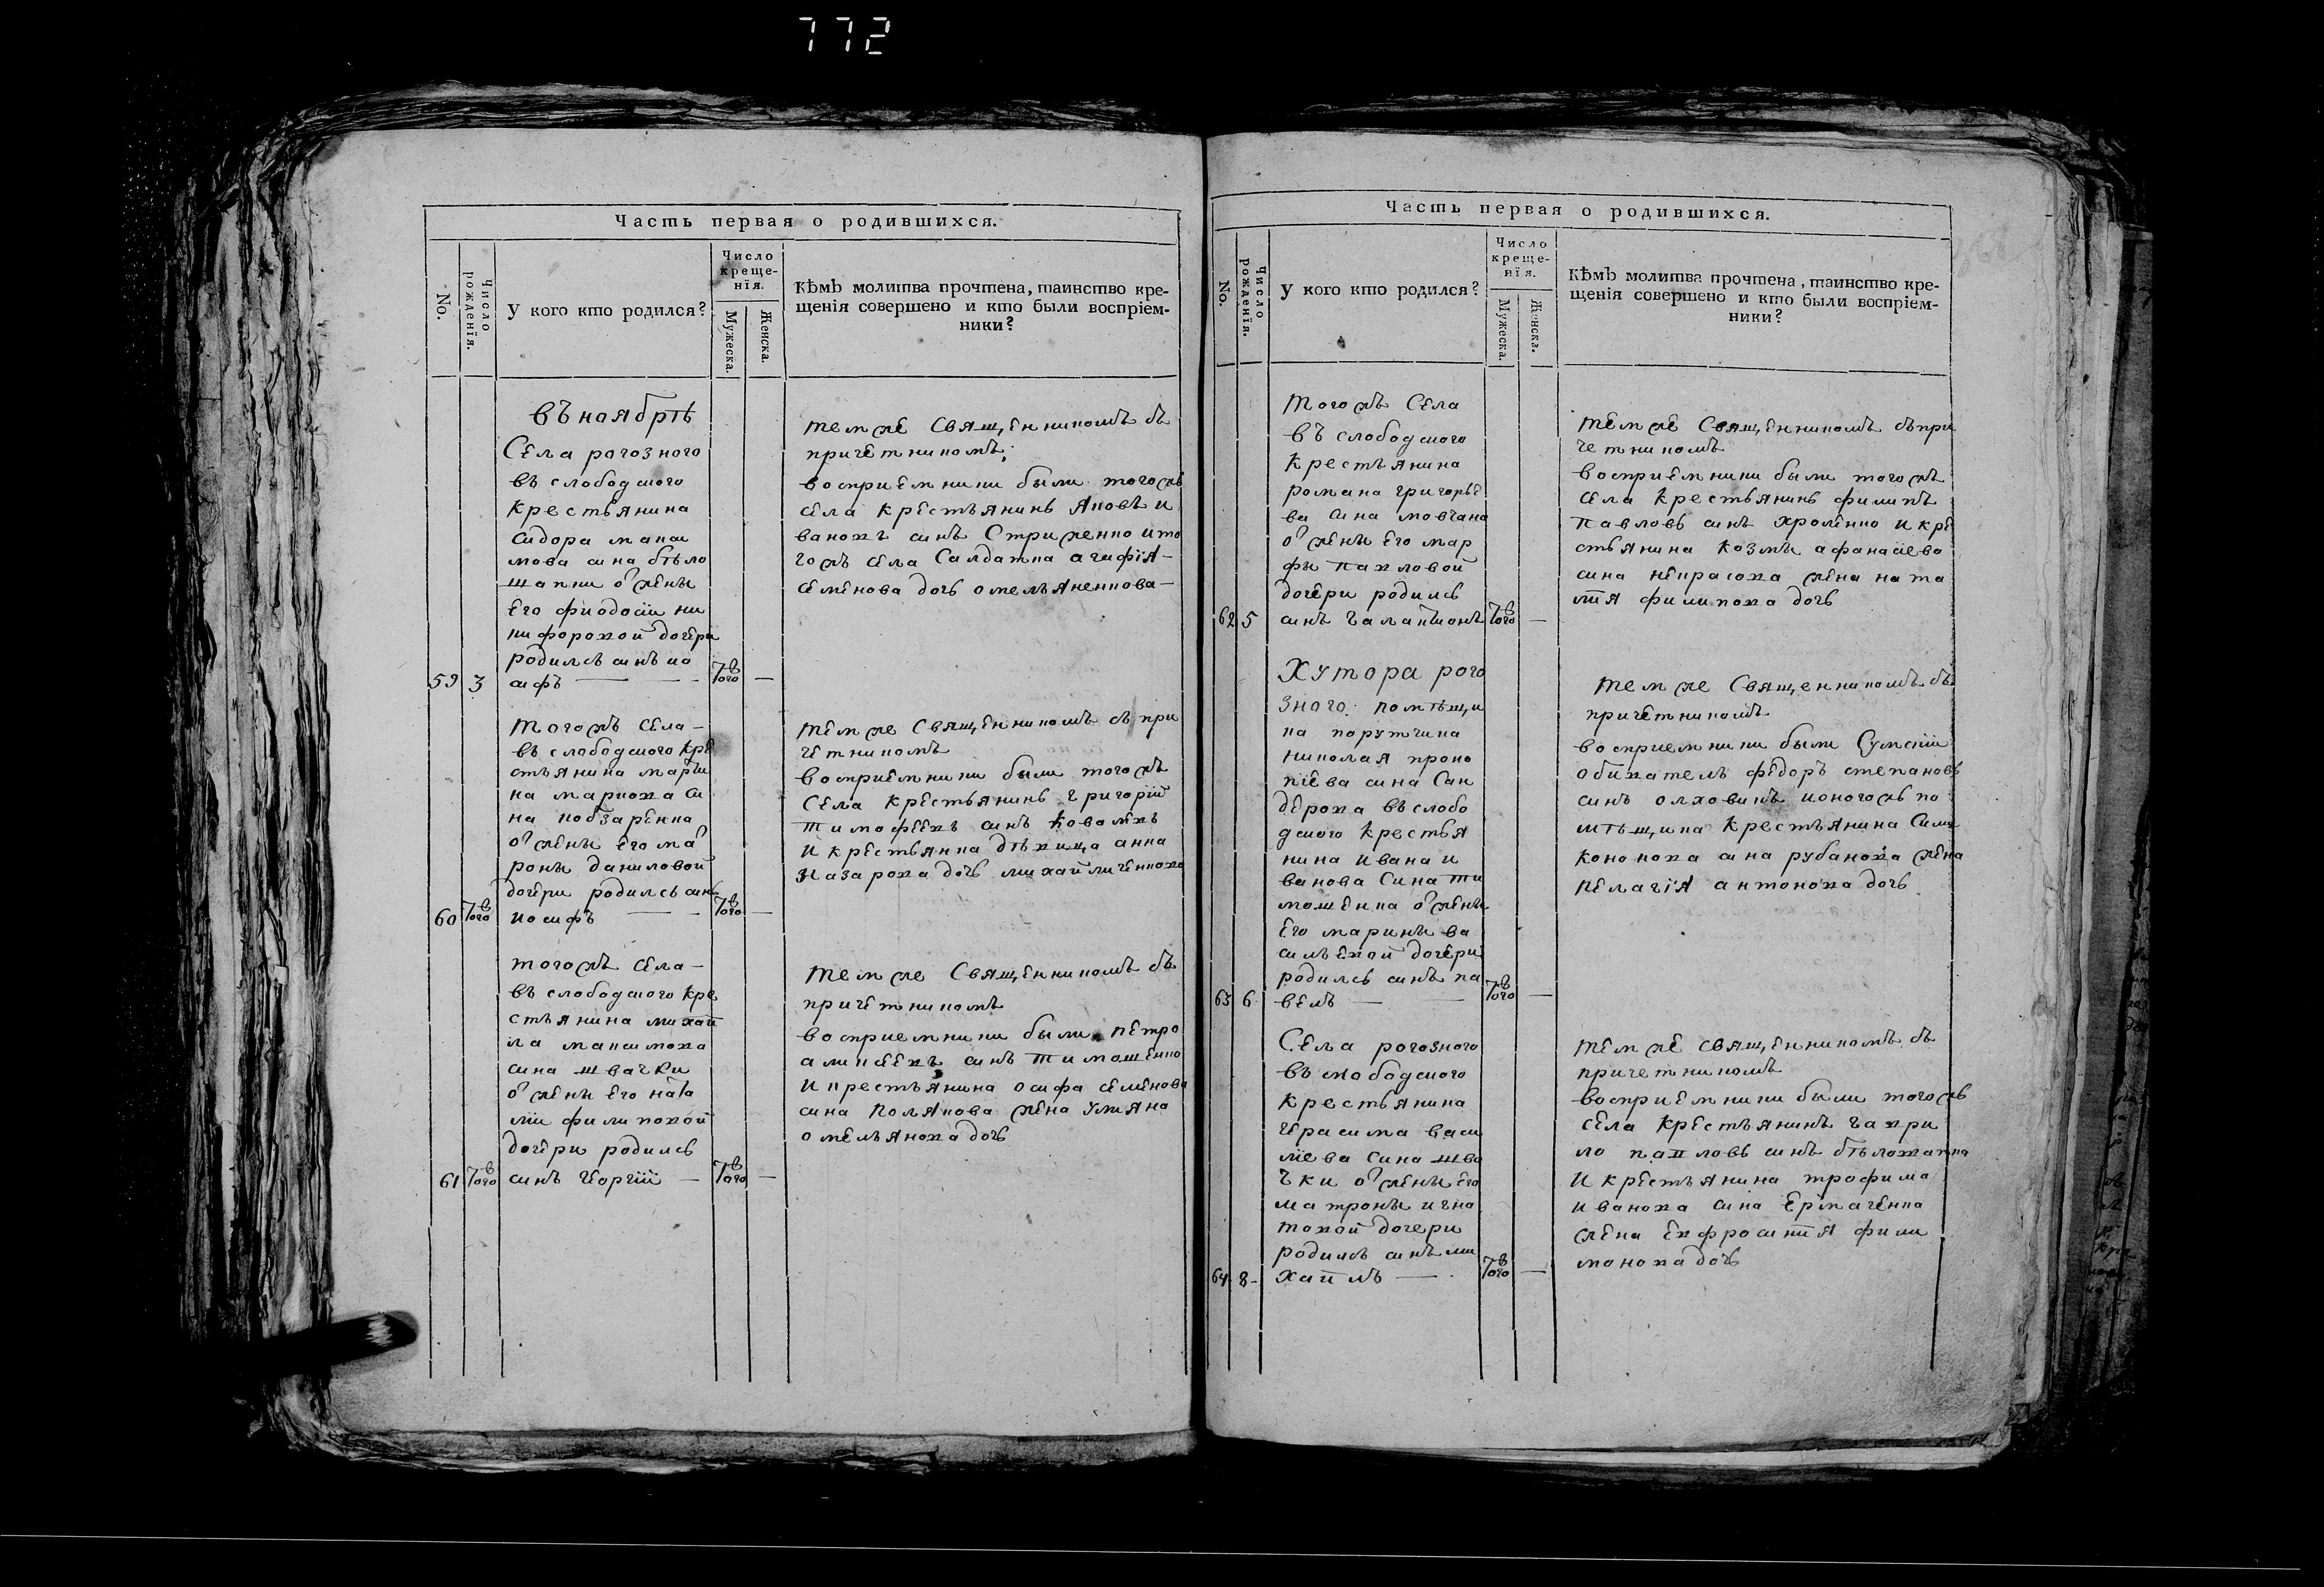 772
Часть первая о родившихся.
No.
Число рожденія.
У кого кто родился?
Число
креще-
нія.
Мужеска.
Женска.
Кѣмъ молитва прочтена, таинство кре-
щенія совершено и кто были воспріем-
ники?
въ ноябрѣ
Села рогозного
въ слободского
крестьянина
Сидора макси
мова сина бѣло
шапки о жены
его фиодосіи ни
кифоровой дочери
родилсъ синъ ио
59 3 сифъ — того —
темже Священникомъ съ
причетникомъ;
восприемники были тогожъ
села крестьянинъ Яковъ и
вановъ синъ Стриженко ито
гожъ села Салдатка агафія
семенова дочъ омельяненкова
тогожъ села
въ слободского кре
стьянина марти
на маркова си
на кобзаренка
о жены его ма
роны даниловой
дочери родилсъ синъ
60 того иосифъ — того —
темже Священникомъ съ при
четникомъ
восприемники были тогожъ
Села крестьянинъ григорій
тимофеевъ синъ ковалевъ
и крестьянка дѣвица анна
назарова дочъ михайличенкова
тогожъ села
въ слободского кре
стьянина михай
ла максимова
сина швачки
о жены его ната
ліи филиповой
дочери родилсъ
61 того синъ георгій — того —
темже Священникомъ съ
причетникомъ
восприемники были петро
аликсеевъ синъ тимошенко
и крестьянина осифа семенова
сина полякова жена улияна
омельянова дочъ
Часть первая о родившихся.
No.
Число рожденія.
У кого кто родился?
Число
креще-
нія.
Мужеска.
Женска.
Кѣмъ молитва прочтена, таинство кре-
щенія совершено и кто были воспріем-
ники?
тогожъ Села
въ слободского
крестьянина
романа григорье
ва сина мовчана
о жены его мар
фы павловой
дочери родилсъ
62 5 синъ галактионъ того —
темже Священникомъ съ при
четникомъ
восприемники были тогожъ
села крестьянинъ филипъ
павловъ синъ хроленко и кре
стьянина козмы афанасіево
сина некрасова жена ната
лія филипова дочъ
Хутора рого
зного помѣщи
ка порутчика
николая проко
піева сина Сан
дерова въ слобо
дского крестья
нина ивана и
ванова Сина ти
мошенка о жены
его марины ва
сильевой дочери
родилсъ синъ па
63 6 велъ — того —
темже Священникомъ съ
причетникомъ
восприемники были Сумскій
обиватель федоръ степановъ
синъ олховикъ и оногожъ по
мѣщика крестьянина Силы
кононова сина рубанова жена
пелагія антонова дочъ
Села рогозного
въ слободского
крестьянина
герасима васи
ліева Сина шва
чки о жены его
матроны игна
товой дочери
родилсъ синъ ми
64 8 хайлъ — того —
темже священникомъ съ
причетникомъ
восприемники были тогожъ
села крестьянинъ гаври
ло павловъ синъ бѣлошапка
и крестьянина трофима
иванова сина Ермаченка
жена Евфросинія фили
монова дочъ